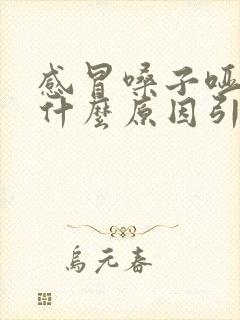 感冒嗓子哑
什麼原因引
烏元春